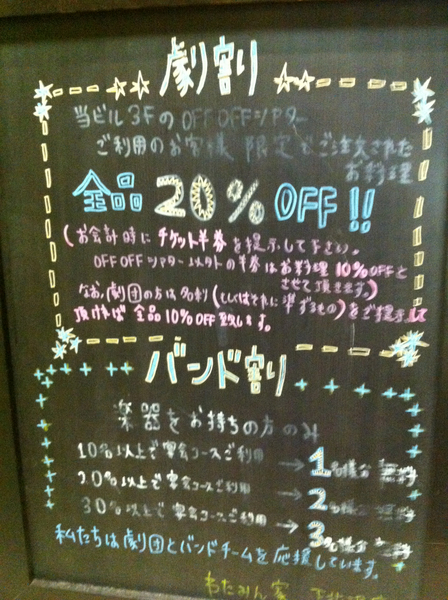 劇り割り
当ビル3FのOFFOFFシアター
ご利用のお客様 限定でご注文された
お料理
全品20%OFF!!
(お会計時にチケット半券を提示して下さい。
OFFOFFシアター以外の半券はお料理10%OFFと
させて頂きます。)
なお、劇団の方は名刺(もしくはそれに準ずるもの)をご提示して
頂ければ全品10%OFF致します。
バンド割り
楽器をお持ちの方のみ
10%以上で宴会コースご利用 → 1名様分 無料
20%以上で宴会コースご利用 → 2名様分 無料
30%以上で宴会コースご利用 → 3名様分 無料
私たちは劇団とバンドチームを応援しています。
わたみん家 下北沢